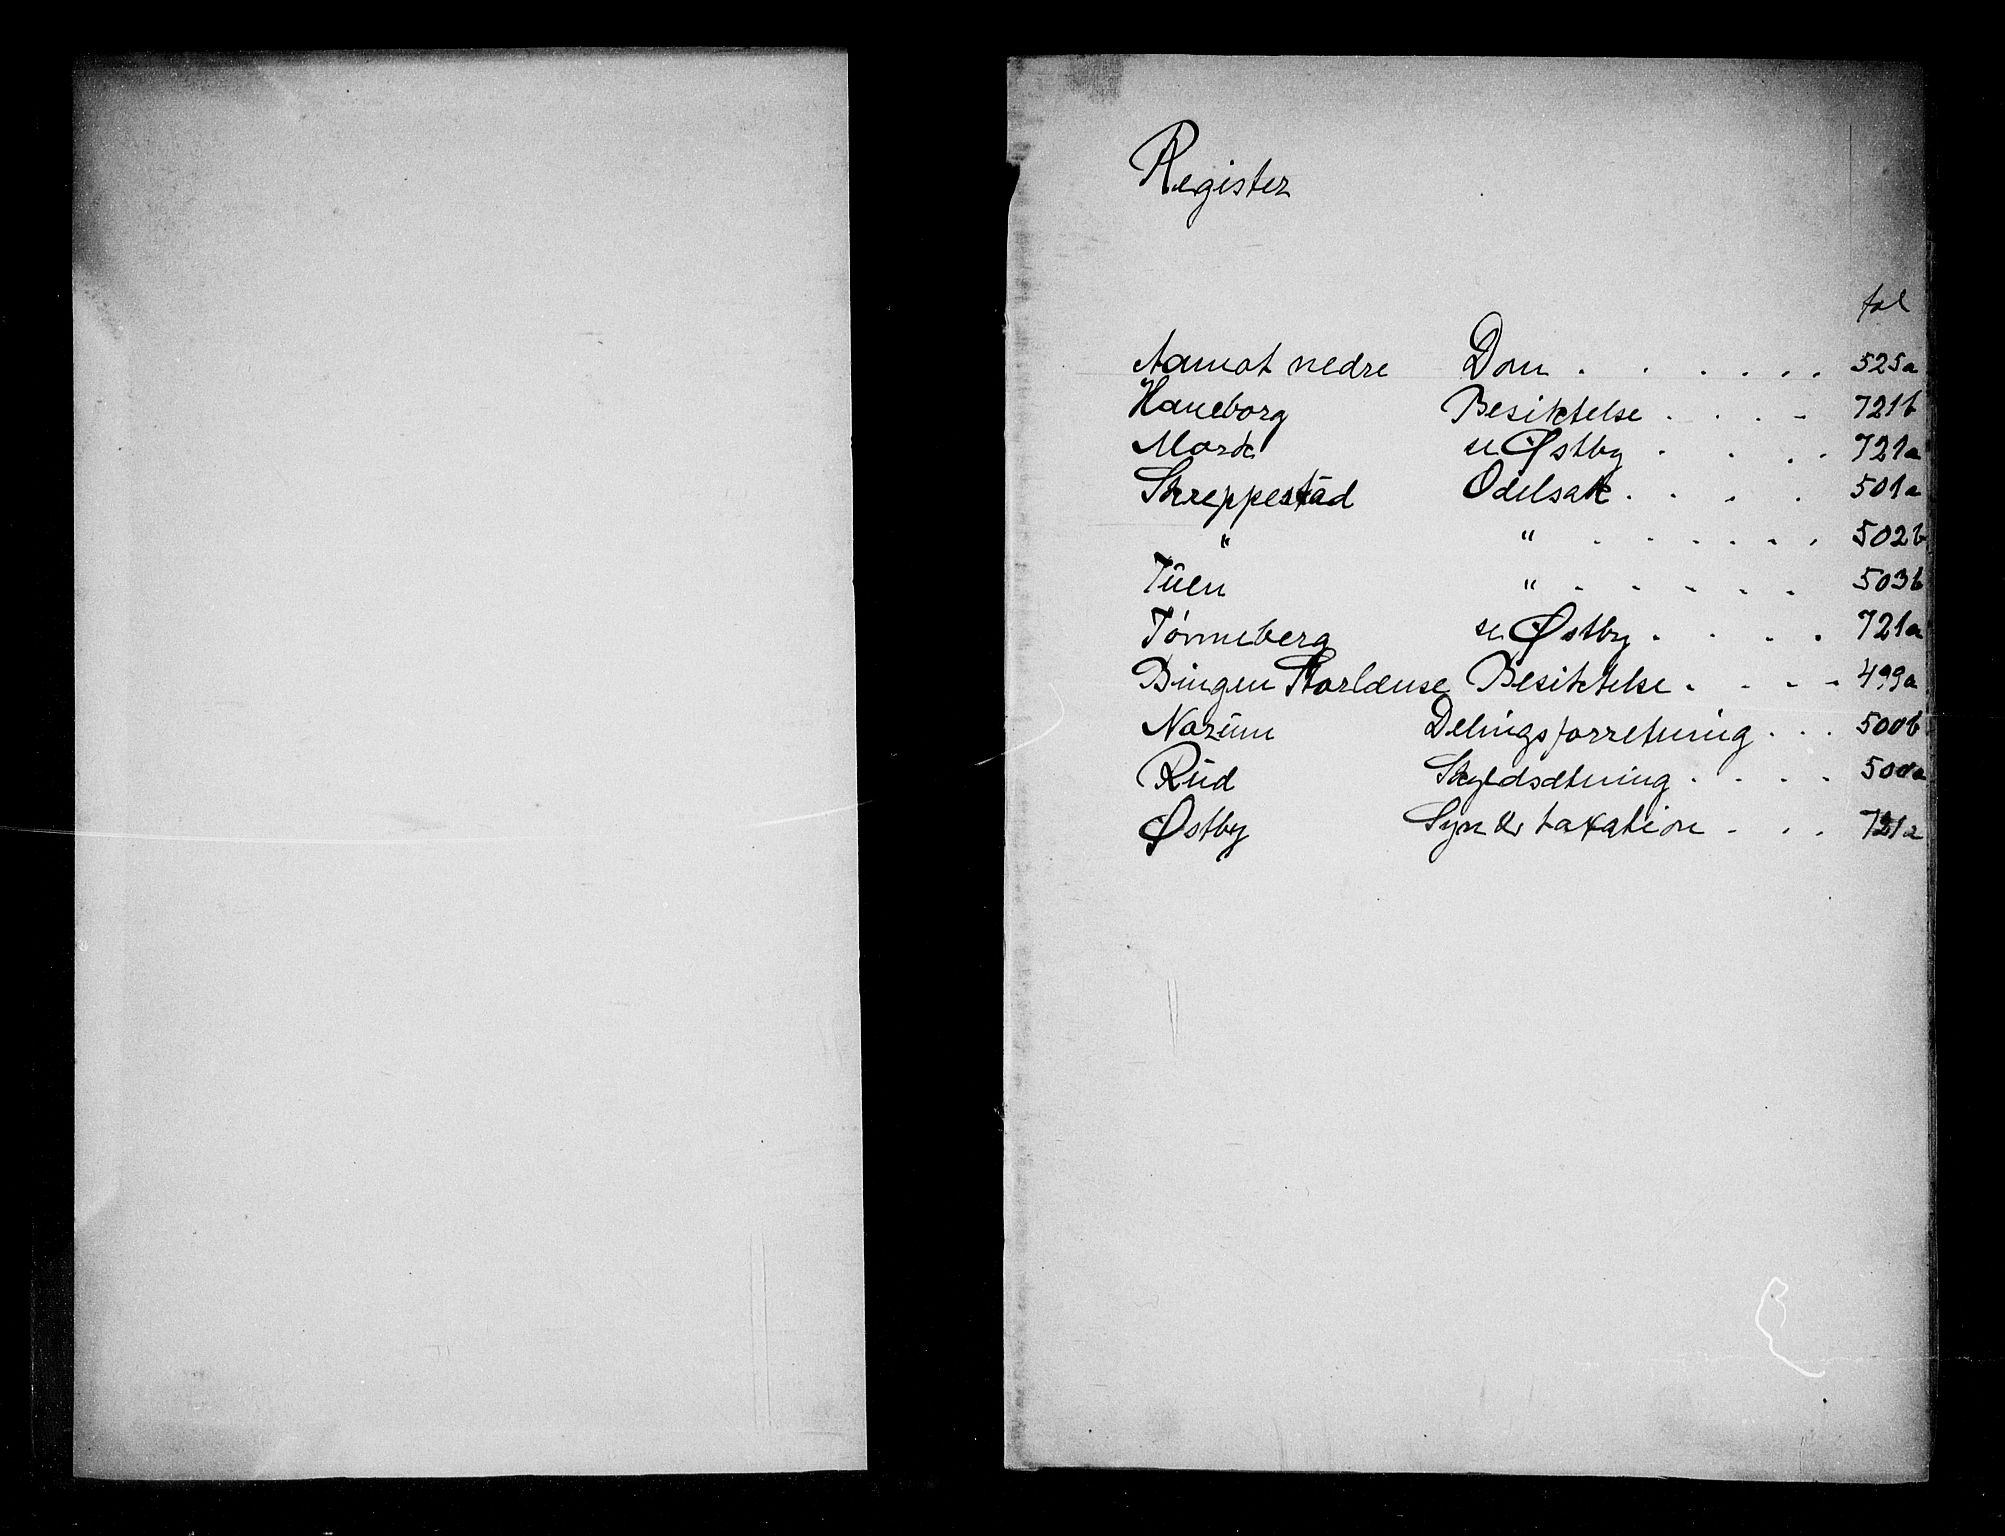 Register
fol
Aamot nedre Dom . . . . . . 525a
Haneborg Besiktelse . . . - 721b
Mork se Østby . . . . 721a
Skreppestad Odelsak . . . . 501a
" " . . . . . . 502b
Tuen " . . . . . 503b
Tønneberg se Østby . . . . 721a
Bingen Storlænse Besiktelse . . . . 499a
Norum Delingsforretning . . . 500b
Rud Skyldsætning . . . . 500a
Østby Syn & taxation . . . 721a